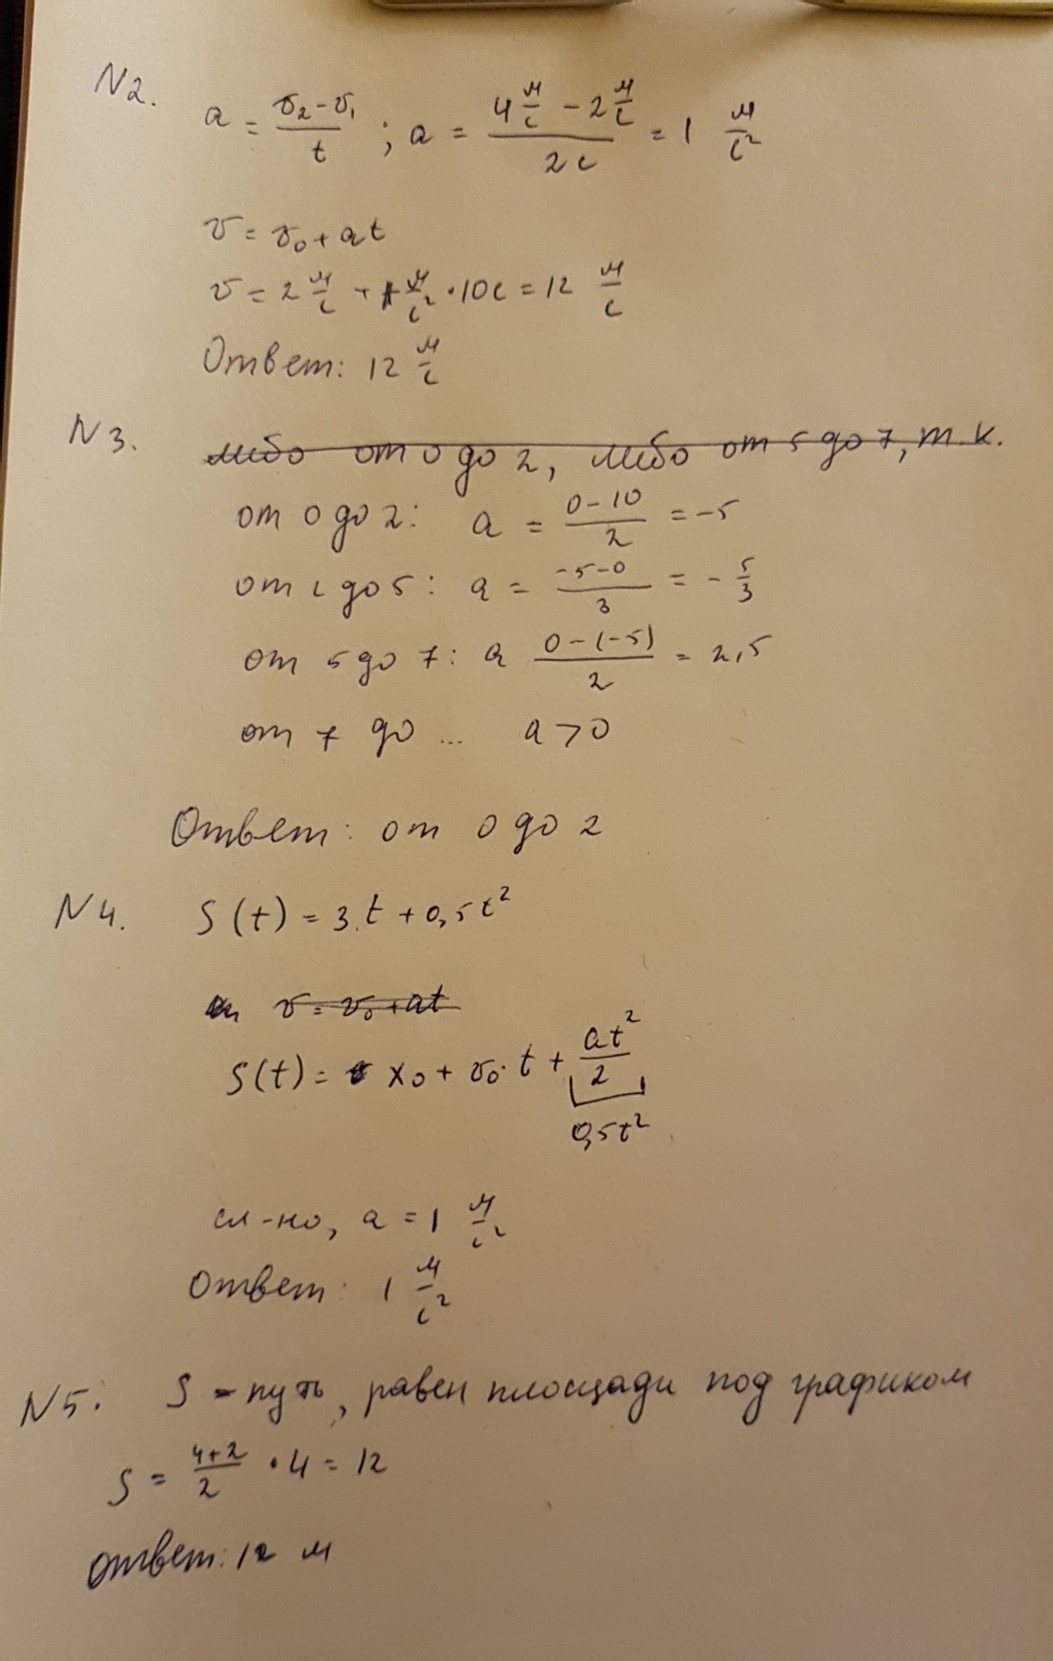 N2. a = (υ₂ - υ₁)/t ; a = (4 м/с - 2 м/с)/2с = 1 м/с²
υ = υ₀ + at
υ = 2 м/с + 1 м/с² · 10с = 12 м/с
Ответ: 12 м/с
N3. либо от 0 до 2, либо от 5 до 7, т.к.
от 0 до 2: a = (0-10)/2 = -5
от 2 до 5: a = (-5-0)/3 = -5/3
от 5 до 7: a (0-(-5))/2 = 2,5
от 7 до ... a > 0
Ответ: от 0 до 2
N4. S(t) = 3.t + 0,5t²
υ = υ₀ + at
S(t) = x₀ + υ₀· t + at²/2
0,5t²
сл-но, a = 1 м/с²
Ответ: 1 м/с²
N5. S - путь, равен площади под графиком
S = (4+2)/2 · 4 = 12
Ответ: 12 м